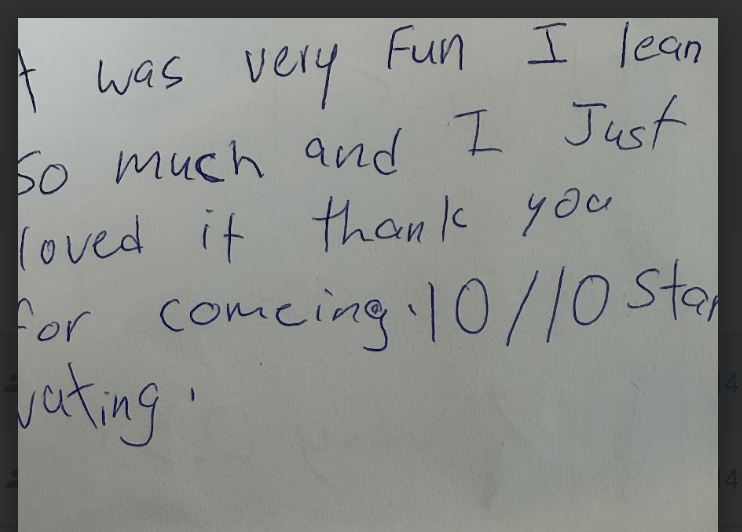 t was very Fun I lean
So much and I Just
loved it thank you
for comeing. 10/10 Star
vating.